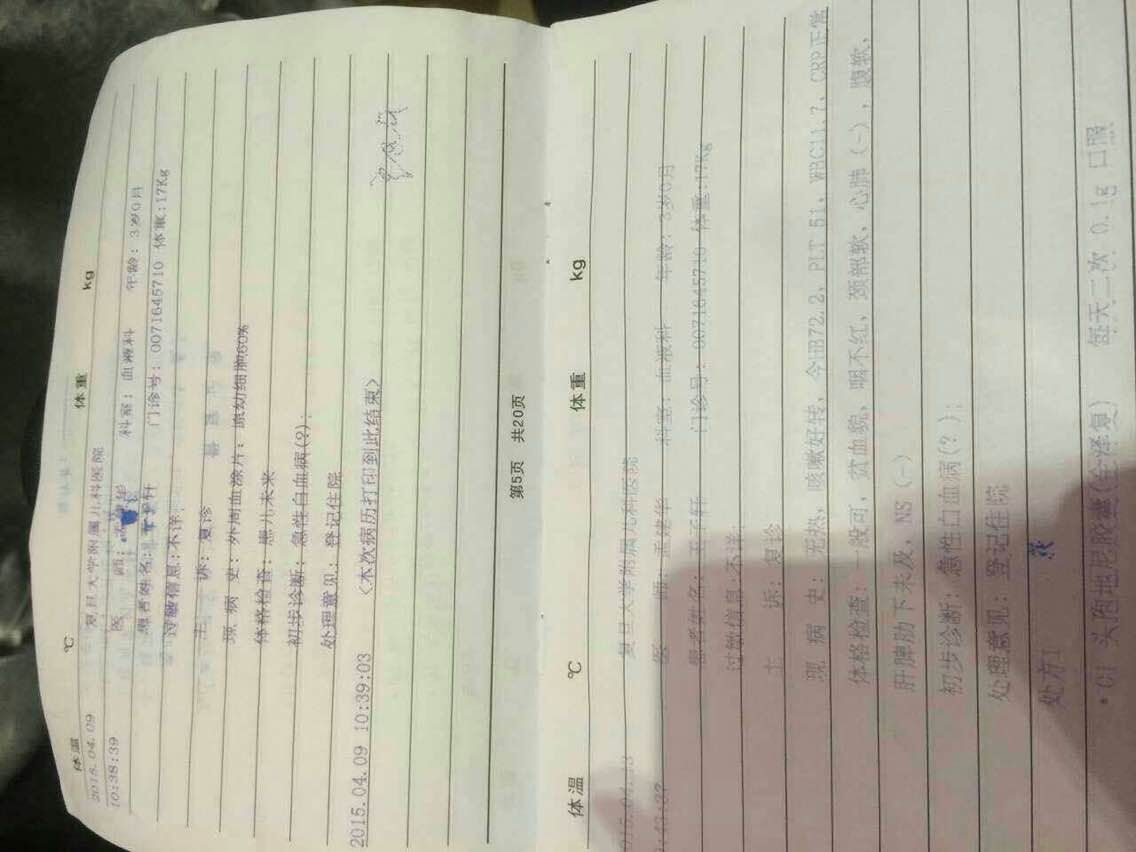 体温 ℃ 体重 kg
2015.04.09 复旦大学附属儿科医院
10:38:39 医 师: 科室: 血液科 年龄: 3岁0月
患者姓名: 门诊号: 0071645710 体重:17Kg
过敏信息:不详;
主 诉: 复诊
现 病 史: 外周血涂片: 原幼细胞60%
体格检查: 患儿未来
初步诊断: 急性白血病(?);
处理意见: 登记住院
2015.04.09 10:39:03 〈本次病历打印到此结束〉
第5页 共20页
体温 ℃ 体重 kg
复旦大学附属儿科医院
医 师: 孟建华 科室: 血液科 年龄: 3岁0月
患者姓名: 门诊号: 0071645710 体重:17Kg
过敏信息:不详;
主 诉: 复诊
现 病 史: 无热, 咳嗽好转, 今HB72.2, PLT 51, WBC11.7, CRP正常
体格检查: 一般可, 贫血貌, 咽不红, 颈部软, 心肺(-), 腹软,
肝脾肋下未及, NS (-)
初步诊断: 急性白血病(?);
处理意见: 登记住院
处方1
·G1 头孢地尼胶囊(全泽复) 每天二次 0.1g 口服